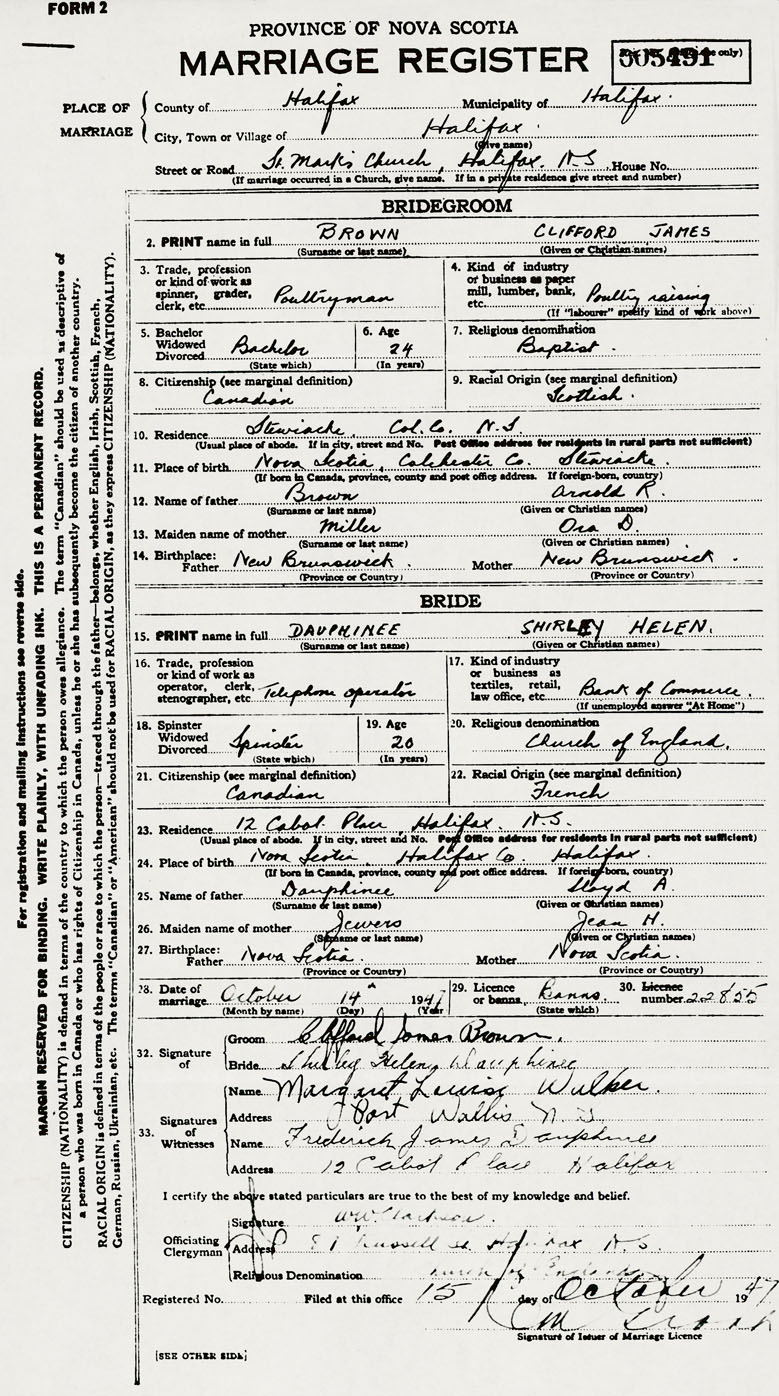 FORM 2
PROVINCE OF NOVA SCOTIA
MARRIAGE REGISTER
005491
PLACE OF MARRIAGE
County of Halifax Municipality of Halifax.
City, Town or Village of Halifax.
(Give name)
Street or Road St. Mark's Church, Halifax. N.S House No.
(If marriage occurred in a Church, give name. If in a private residence give street and number)
BRIDEGROOM
2. PRINT name in full BROWN CLIFFORD JAMES
(Surname or last name) (Given or Christian names)
3. Trade, profession or kind of work as spinner, grader, clerk, etc. Poultryman
4. Kind of industry or business as paper mill, lumber, bank, etc. Poultry raising
(If "labourer" specify kind of work above)
5. Bachelor Widowed Divorced Bachelor
(State which)
6. Age 24
(In years)
7. Religious denomination
Baptist.
8. Citizenship (see marginal definition)
Canadian
9. Racial Origin (see marginal definition)
Scottish.
10. Residence Stewiacke, Col. Co. N.S.
(Usual place of abode. If in city, street and No. Post Office address for residents in rural parts not sufficient)
11. Place of birth Nova Scotia, Colchester Co. Stewiacke.
(If born in Canada, province, county and post office address. If foreign-born, country)
12. Name of father Brown Arnold R.
(Surname or last name) (Given or Christian names)
13. Maiden name of mother Miller Ora D.
(Surname or last name) (Given or Christian names)
14. Birthplace: Father New Brunswick. Mother New Brunswick.
(Province or Country) (Province or Country)
BRIDE
15. PRINT name in full DAUPHINEE SHIRLEY HELEN.
(Surname or last name) (Given or Christian names)
16. Trade, profession or kind of work as operator, clerk, stenographer, etc. Telephone operator
17. Kind of industry or business as textiles, retail, law office, etc. Bank of Commerce.
(If unemployed answer "At Home")
18. Spinster Widowed Divorced Spinster
(State which)
19. Age 20
(In years)
20. Religious denomination
Church of England.
21. Citizenship (see marginal definition)
Canadian
22. Racial Origin (see marginal definition)
French
23. Residence 12 Cabot Place, Halifax. N.S.
(Usual place of abode. If in city, street and No. Post Office address for residents in rural parts not sufficient)
24. Place of birth Nova Scotia, Halifax Co. Halifax.
(If born in Canada, province, county and post office address. If foreign-born, country)
25. Name of father Dauphinee Lloyd A.
(Surname or last name) (Given or Christian names)
26. Maiden name of mother Jewers Jean H.
(Surname or last name) (Given or Christian names)
27. Birthplace: Father Nova Scotia. Mother Nova Scotia.
(Province or Country) (Province or Country)
28. Date of marriage October 14 1947
(Month by name) (Day) (Year)
29. Licence or banns Banns.
(State which)
30. Licence number 22855
32. Signature of
Groom Clifford James Brown.
Bride Shirley Helen Dauphinee
33. Signatures of Witnesses
Name Margaret Louise Walker.
Address Port Wallis N.S
Name Frederick James Dauphinee
Address 12 Cabot Place Halifax
I certify the above stated particulars are true to the best of my knowledge and belief.
Officiating Clergyman
Signature
Address Russell St Halifax N.S.
Religious Denomination Church of England
Registered No. Filed at this office 15 day of October 1947
Signature of Issuer of Marriage Licence
[SEE OTHER SIDE]
For registration and mailing instructions see reverse side.
MARGIN RESERVED FOR BINDING. WRITE PLAINLY, WITH UNFADING INK. THIS IS A PERMANENT RECORD.
CITIZENSHIP (NATIONALITY) is defined in terms of the country to which the person owes allegiance. The term "Canadian" should be used as descriptive of
a person who was born in Canada or who has rights of Citizenship in Canada, unless he or she has subsequently become the citizen of another country.
RACIAL ORIGIN is defined in terms of the people or race to which the person—traced through the father—belongs, whether English, Irish, Scottish, French,
German, Russian, Ukrainian, etc. The terms "Canadian" or "American" should not be used for RACIAL ORIGIN, as they express CITIZENSHIP (NATIONALITY).